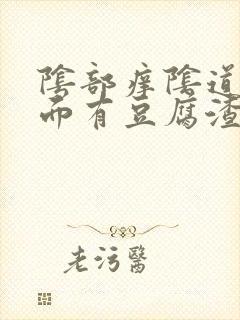 陰部痒陰道
而有豆腐渣
老污醫